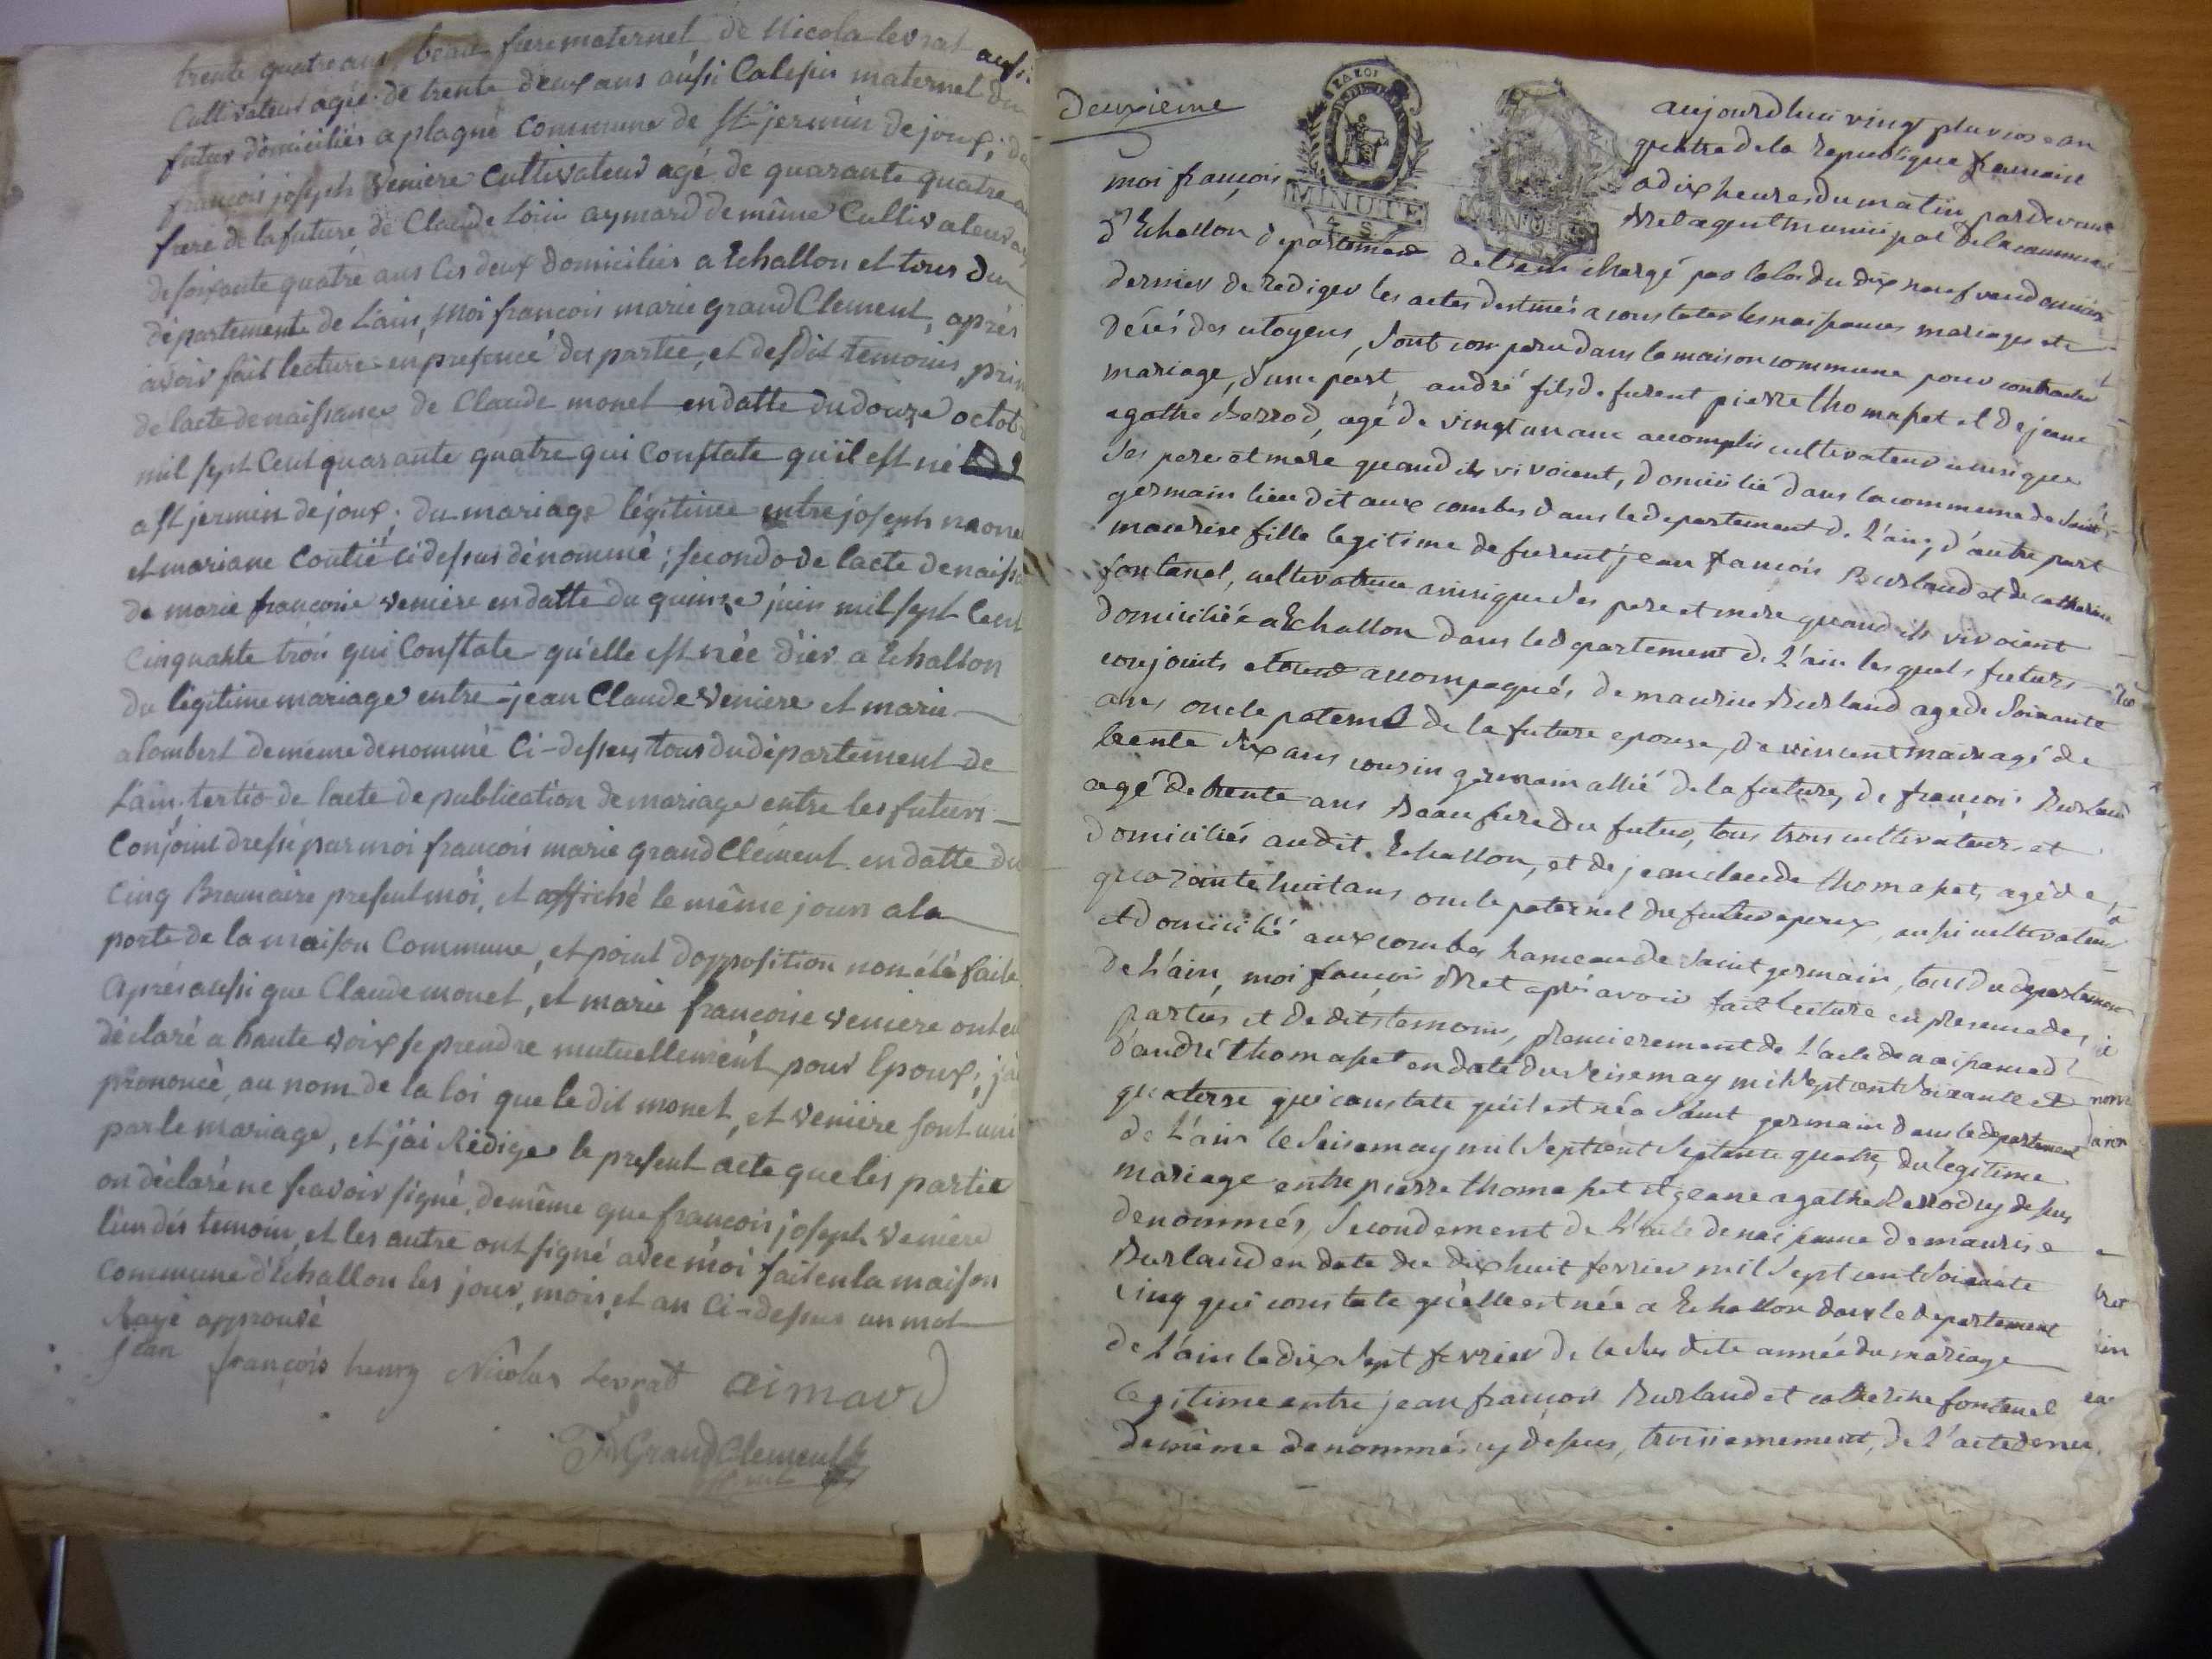 trente quatre ans, beau frere maternel de Nicola levrat aussi
Cultivateur agée de trente deux ans aussi Calesin maternel du
futur domiciliés a plagne Commune de St jermin de joux; de
françois joseph Veniere Cultivateur agé de quarante quatre an
frere de la future de Claude Loüi aymard de même Cultivateur a
de soixante quatre ans les deux domiciliés a Echallon et tous du
département de Lain, Moi françois marie grand Clement, après
avoir fait lecture en presence des partie, et desdit temoins, prim
de lacte de naissance de Claude monet en datte du douze octob
mil sept Cent quarante quatre qui Constate qu'il est né
a St jermin de joux; du mariage légitime entre joseph mone
et mariane Coutié ci dessus dénommé; secondo de lacte de naiss
de marie françoise veniere en datte du quinze juin mil sept Cent
Cinquante troi qui Constate qu'elle est née d'ier a Echallon
du légitime mariage entre jean Claude Veniere et marie
alombert de même denommé Ci-dessus tous du département de
Lain. tertio de lacte de publication de mariage entre les futurs
Conjoint dressé par moi françois marie grand Clément en datte du
Cinq Brumaire present moi, et affiché le même jour a la
porte de la maison Commune, et point d'opposition non été faite
Aprés aussi que Claude monet, et marie françoise veniere ont eu
déclaré a haute voix se prendre mutuellement pour Epoux; j'ai
prononcé, au nom de la loi que le dit monet, et veniére sont uni
par le mariage, et j'ai Rédige le present acte que les partie
on déclaré ne scavoir signé, de même que françois joseph Veniere
l'un des temoin, et les autre ont signé avec moi fait en la maison
Commune d'Echallon les jour, mois, et an Ci-dessus un mot
Rayé approuvé
jean françois henry Nicolas Levrat aimard
GrandClement
Deuxieme
LA LOI
MINUTE
MINUTE
aujourdhui vingt pluviose an
quatre de la Republique francaise
a dix heures du matin pardevant
moi françois Bret agent municipal de la commune
d'Echallon departement de l'ain chargé par la loi du dix neuf vendemiaire
dernier de rediger les actes destinés a constater les naissances mariages et
décés des citoyens, Sont comparu dans la maison commune pour contracter
mariage, d'une part andré fils de furent pierre thomasset et de jeane
agathe Berrod, agé de vingt un ans accomplis cultivateur ainsi que
Ses pere et mere quand ils vivoient, domicilié dans la commune de Saint
germain lieu dit aux combes dans le departement de L'ain, d'autre part
maurise fille legitime de furent jean francois Burlaud et de catherine
fontanel, cultivatrice ainsi que Ses pere et mere quand ils vivoient
domiciliée a Echallon dans le departement de L'ain les quels futurs
conjoints etoient accompagnés de maurise Burlaud agé de Soixante
ans oncle paternel de la future epouse, de vincent mair agé de
trente dix ans cousin germain allié de la future, de françois Burlaud
agé de trente ans Beau frere du futur, tous trois cultivateurs et
domiciliés audit Echallon, et de jean claude thomasset, agé de
quarante huit ans oncle paternel du futur epoux, aussi cultivateur
et domicilié aux combes hameau de Saint germain, tous du departement
de L'ain, moi francois Bret aprés avoir fait lecture en presence des
parties et dedits temoins, premierement de L'acte de naissance d
d'andré thomasset en date du Seise may mil Sept cent Soixante et
quatorse qui constate qu'il est né a Saint germain dans le departement
de L'ain le Seise may mil Sept cent Septante quatre, du legitime
mariage entre pierre thomasset et jeane agathe Berrod cy dessus
denommés, Secondement de L'acte de naissance de maurise
Burlaud en date du dix huit fevrier mil Sept cent Soixante
cinq qui constate qu'elle est née a Echallon dans le departement
de L'ain le dix Sept fevrier de la Sus dite année du mariage
legitime entre jean francois Burlaud et catherine fontanel
de même denommés cy dessus, troisiemement, de L'acte de